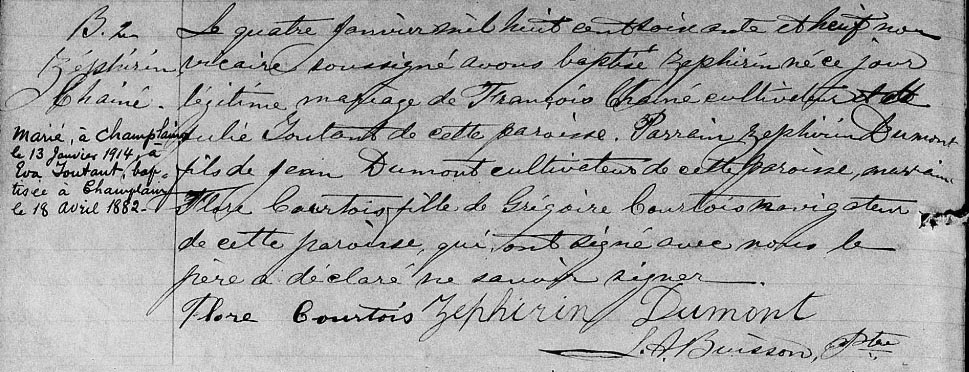 B. 2
Zéphirin
Chainé.
Marié, à Champlain
le 13 Janvier 1914, à
Eva Toutant, bap-
tisée à Champlain
le 18 avril 1882-
Le quatre Janvier mil huit cent soixante et neuf nous
vicaire soussigné avons baptisé Zephirin né ce jour
légitime mariage de François Chainé cultivateur et de
Julie Toutant de cette paroisse Parrain Zephirin Dumont
fils de Jean Dumont cultivateur de cette paroisse, marraine
Flore Courtois fille de Grégoire Courtois navigateur
de cette paroisse, qui, ont signé avec nous le
père a déclaré ne savoir signer
Flore Courtois Zephirin Dumont
Buisson, Ptre